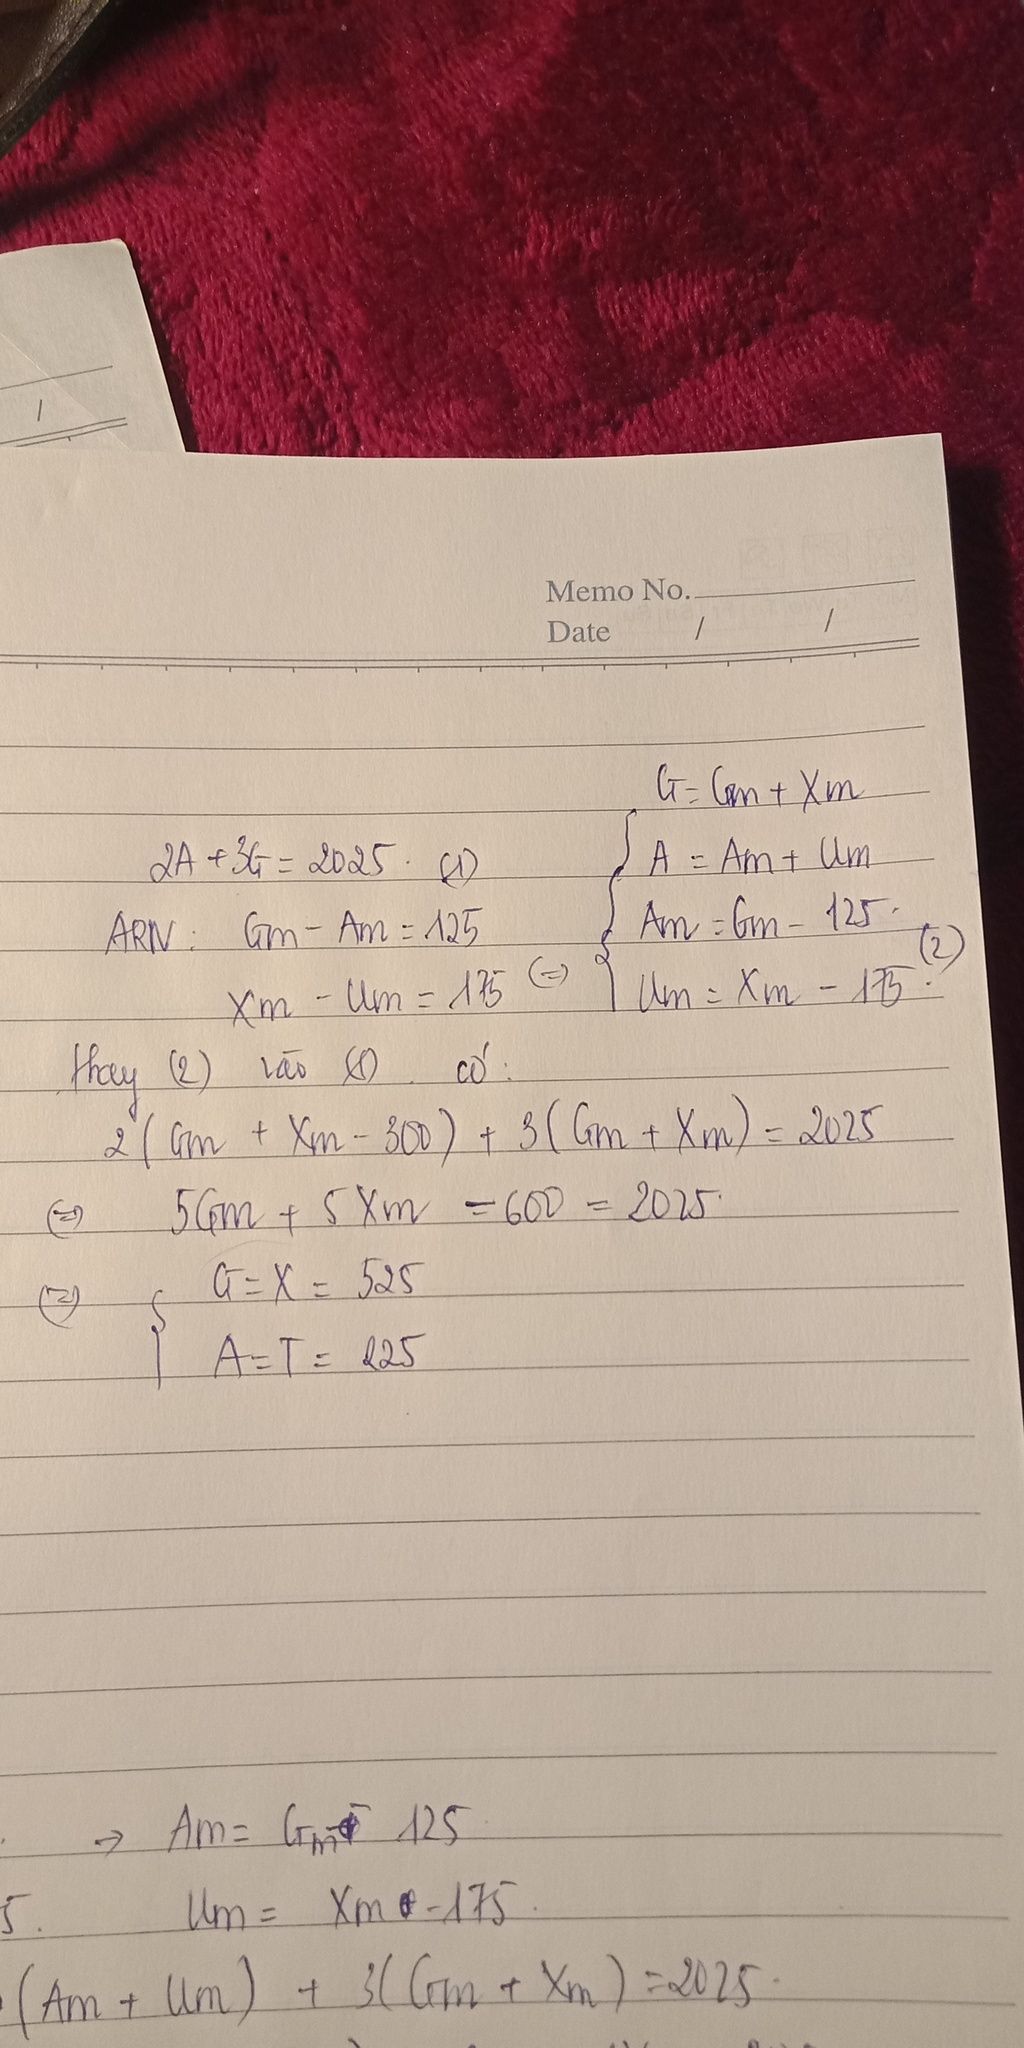 Memo No.
Date / /
/
G = Gm + Xm
2A + 3G = 2025. (1)
A = Am + Um
ARN: Gm - Am = 125
Am = Gm - 125.
Xm - Um = 175 (=)
Um = Xm - 175. (2)
thay (2) vào (1) có:
2(Gm + Xm - 300) + 3(Gm + Xm) = 2025
(=) 5Gm + 5Xm = 600 = 2025.
(=) { G = X = 525
A = T = 225
. → Am = Gm - 125
5. Um = Xm - 175.
(Am + Um) + 3(Gm + Xm) = 2025.